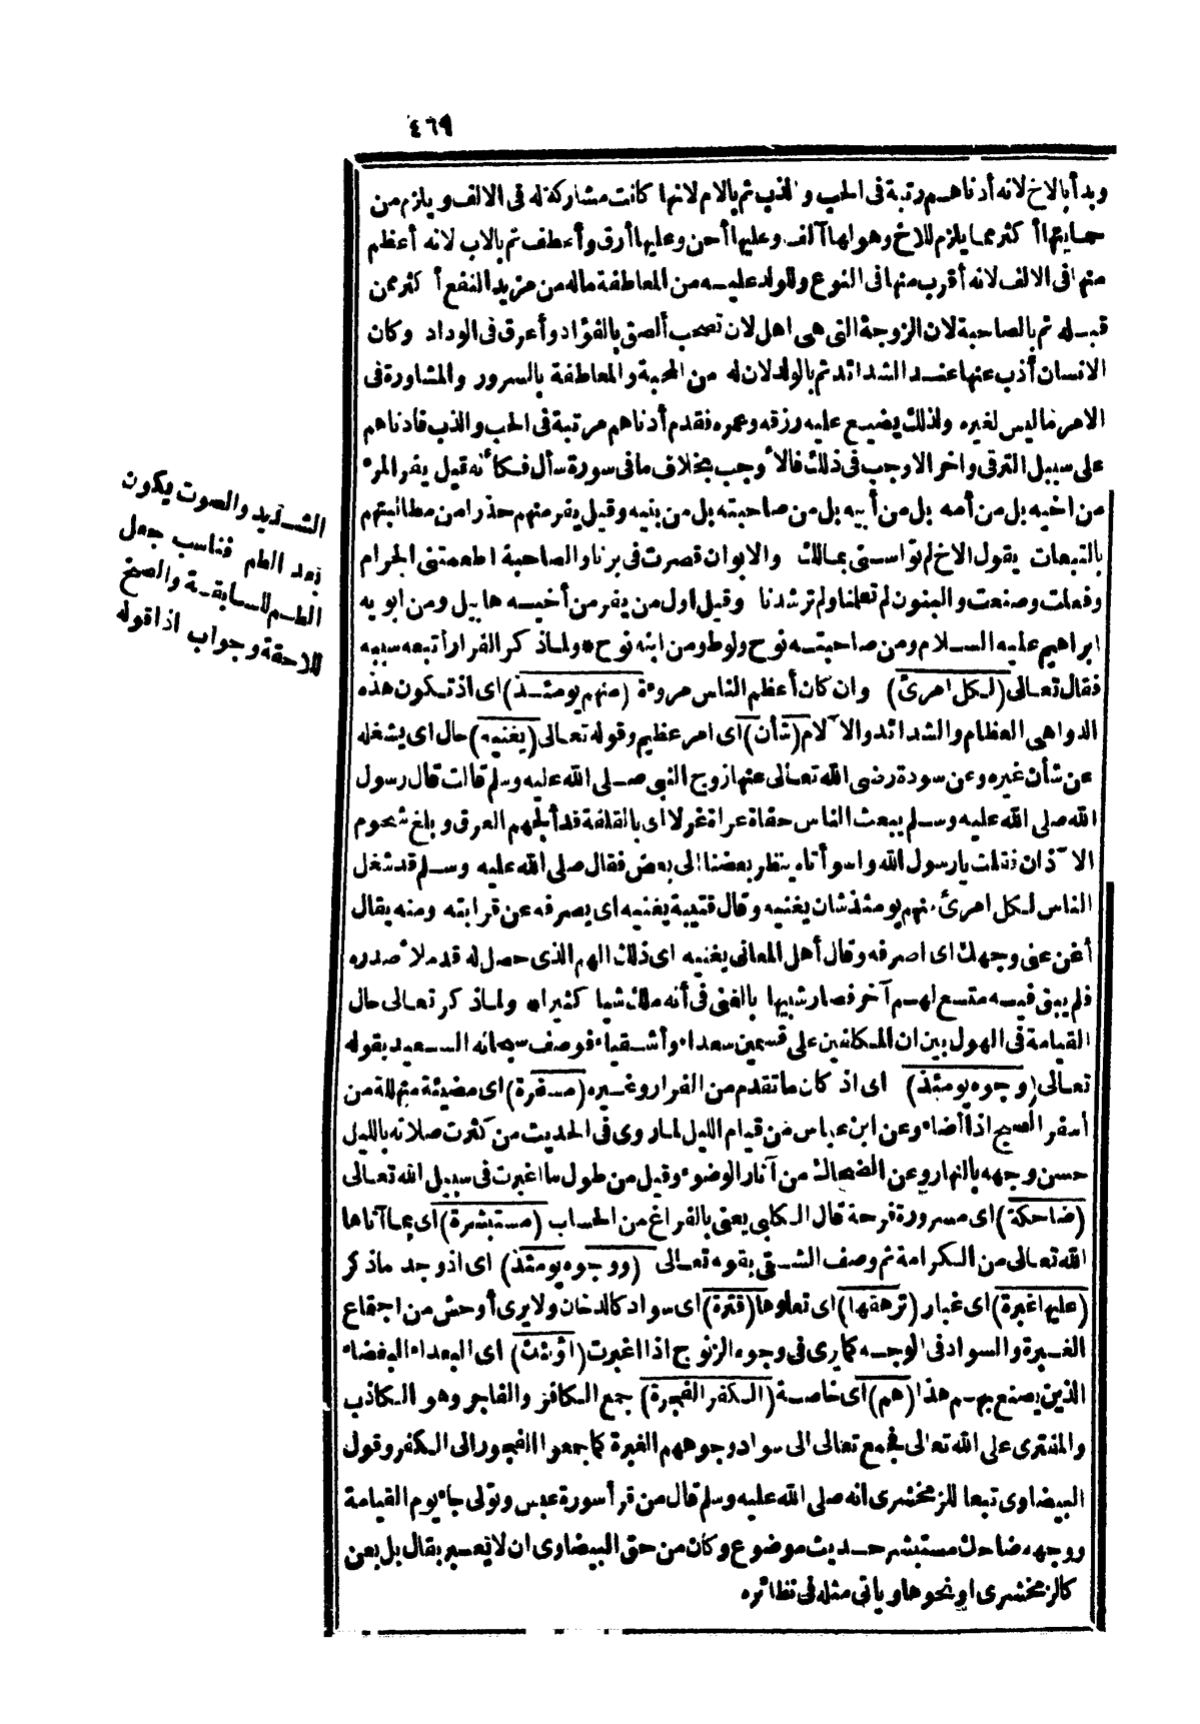 ٤٦٩
وبدأ بالاخ لانه أدناهم رتبة فى الحب والذب ثم بالام لانها كانت مشاركة له فى الالف ويلزم من
حمايتها أكثر مما يلزم للاخ وهو لها آلف وعليها أحن وعليها أرق وأعطف ثم بالاب لانه أعظم
منها فى الالف لانه أقرب منها فى النوع وللولد عليه من المعاطفة ماله من مزيد النفع أكثر ممن
قبله ثم بالصاحبة لان الزوجة التى هى اهل لان تصحب ألصق بالفؤاد وأعرق فى الوداد وكان
الانسان أذب عنها عند الشدائد ثم بالولد لان له من المحبة والمعاطفة بالسرور والمشاورة فى
الامر ماليس لغيره ولذلك يضيع عليه رزقه وعمره فقدم أدناهم مرتبة فى الحب والذب فأدناهم
على سبيل الترقى واخر الاوجب فى ذلك فالأوجب بخلاف مافى سورة سأل فكأنه قيل يفر المرء
من اخيه بل من أمه بل من أبيه بل من صاحبته بل من بنيه وقيل يفر منهم حذرا من مطالبتهم
بالتبعات يقول الاخ لم تواسنى بمالك والابوان قصرت فى برنا والصاحبة اطعمتنى الحرام
وفعلت وصنعت والبنون لم تعلمنا ولم ترشدنا وقيل اول من يفر من أخيه هابيل ومن ابويه
ابراهيم عليه السلام ومن صاحبته نوح ولوط ومن ابنه نوح * ولما ذكر الفرار أتبعه سببه
فقال تعالى (لكل امرئ) وان كان أعظم الناس مروءة (منهم يومئذ) اى اذ تكون هذه
الدواهى العظام والشدائد والآلام (شأن) اى امر عظيم وقوله تعالى (يغنيه) حال اى يشغله
عن شأن غيره وعن سودة رضى الله تعالى عنها زوج النبى صلى الله عليه وسلم قالت قال رسول
الله صلى الله عليه وسلم يبعث الناس حفاة عراة غرلا اى بالقلفة قد ألجمهم العرق وبلغ شحوم
الآذان فقلت يارسول الله واسوأتاه ينظر بعضنا الى بعض فقال صلى الله عليه وسلم قد شغل
الناس لكل امرئ منهم يومئذ شان يغنيه وقال قتيبة يغنيه اى يصرفه عن قرابته ومنه يقال
أغن عنى وجهك اى اصرفه وقال أهل المعانى يغنيه اى ذلك الهم الذى حصل له قد ملأ صدره
فلم يبق فيه متسع لهم آخر فصار شبيها بالغنى فى أنه ملك شيا كثيرا * ولما ذكر تعالى حال
القيامة فى الهول بين ان المكلفين على قسمين سعداء وأشقياء فوصف سبحانه السعيد بقوله
تعالى (وجوه يومئذ) اى اذ كان ما تقدم من الفرار وغيره (مسفرة) اى مضيئة متهللة من
أسفر الصبح اذا أضاء وعن ابن عباس من قيام الليل لما روى فى الحديث من كثرت صلاته بالليل
حسن وجهه بالنهار وعن الضحاك من آثار الوضوء وقيل من طول ما اغبرت فى سبيل الله تعالى
(ضاحكة) اى مسرورة فرحة قال الكلبى يعنى بالفراغ من الحساب (مستبشرة) اى بما آتاها
الله تعالى من الكرامة ثم وصف الشقى بقوله تعالى (ووجوه يومئذ) اى اذ وجد ماذكر
(عليها غبرة) اى غبار (ترهقها) اى تعلوها (قترة) اى سواد كالدخان ولا يرى أوحش من اجتماع
الغبرة والسواد فى الوجه كما يرى فى وجوه الزنوج اذا اغبرت (اولئك) اى البعداء البغضاء
الذين يصنع بهم هذا (هم) اى خاصة (الكفرة الفجرة) جمع الكافر والفاجر وهو الكاذب
والمفترى على الله تعالى فجمع تعالى الى سواد وجوههم الغبرة كما جمعوا الفجور الى الكفر وقول
البيضاوى تبعا للزمخشرى انه صلى الله عليه وسلم قال من قرأ سورة عبس وتولى جاء يوم القيامة
ووجهه ضاحك مستبشر حديث موضوع وكان من حق البيضاوى ان لا يعبر بقال بل بعن
كالزمخشرى او نحوها وياتى مثله فى نظائره
الشديد والصوت يكون
بعد الطم فناسب جعل
الطم للسابقة والصخ
للاحقة وجواب اذا قوله